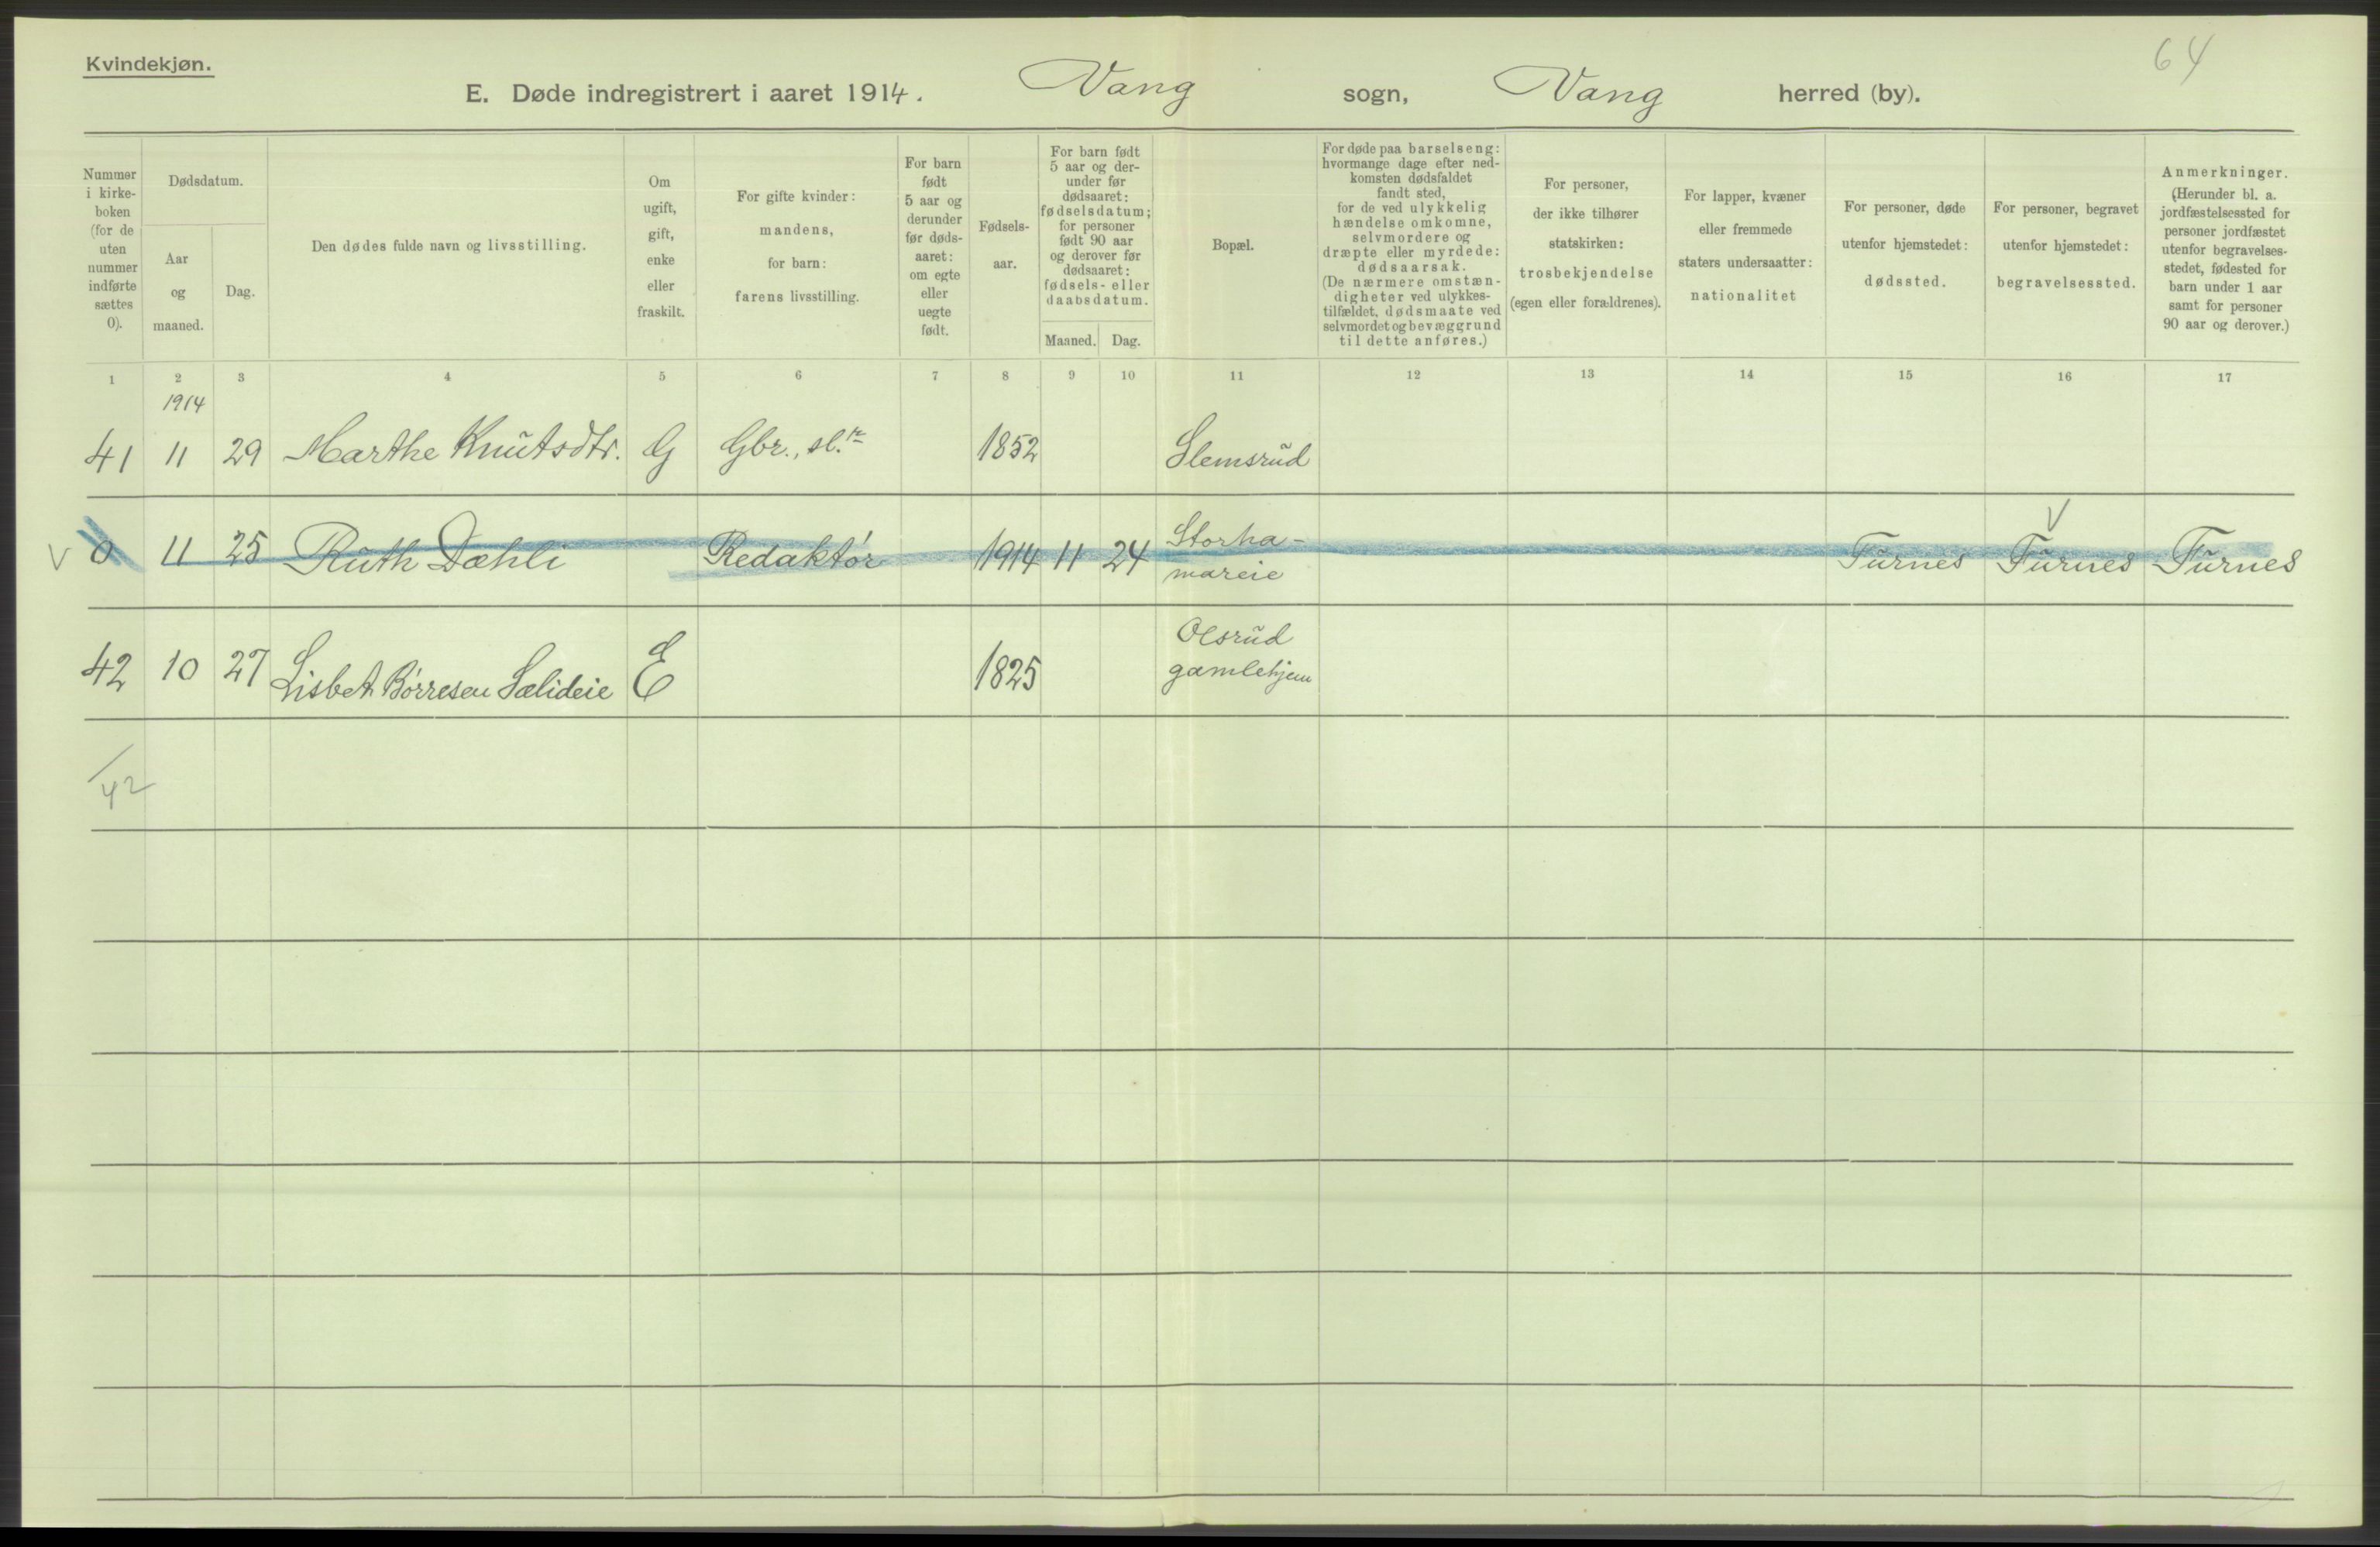 Kvindekjøn.
64
E. Døde indregistrert i aaret 1914. Vang sogn, Vang herred (by).
Nummer
i kirke-
boken
(for de
uten
nummer
indførte
sættes
0).
Dødsdatum.
Aar
og
maaned.
Dag.
Den dødes fulde navn og livsstilling.
Om
ugift,
gift,
enke
eller
fraskilt.
For gifte kvinder:
mandens,
for barn:
farens livsstilling.
For barn
født
5 aar og
derunder
før døds-
aaret:
om egte
eller
uegte
født.
Fødsels-
aar.
For barn født
5 aar og der-
under før
dødsaaret:
fødselsdatum;
for personer
født 90 aar
og derover før
dødsaaret:
fødsels- eller
daabsdatum.
Maaned. Dag.
Bopæl.
For døde paa barselseng:
hvormange dage efter ned-
komsten dødsfaldet
fandt sted,
for de ved ulykkelig
hændelse omkomne,
selvmordere og
dræpte eller myrdede:
dødsaarsak.
(De nærmere omstæn-
digheter ved ulykkes-
tilfældet, dødsmaate ved
selvmordet og bevæggrund
til dette anføres.)
For personer,
der ikke tilhører
statskirken:
trosbekjendelse
(egen eller forældrenes).
For lapper, kvæner
eller fremmede
staters undersaatter:
nationalitet
For personer, døde
utenfor hjemstedet:
dødssted.
For personer, begravet
utenfor hjemstedet:
begravelsessted.
Anmerkninger.
(Herunder bl. a.
jordfæstelsessted for
personer jordfæstet
utenfor begravelses-
stedet, fødested for
barn under 1 aar
samt for personer
90 aar og derover.)
1 2 3 4 5 6 7 8 9 10 11 12 13 14 15 16 17
1914
41 11 29 Marthe Knutsdtr. G Gbr., sl. 1852 Slemsrud
V 0 11 25 Ruth Dæhli Redaktør 1914 11 24 Storha-
mareie Furnes Furnes Furnes
42 10 27 Lisbet Børresen Sælideie E 1825 Olsrud
gamlehjem
/42